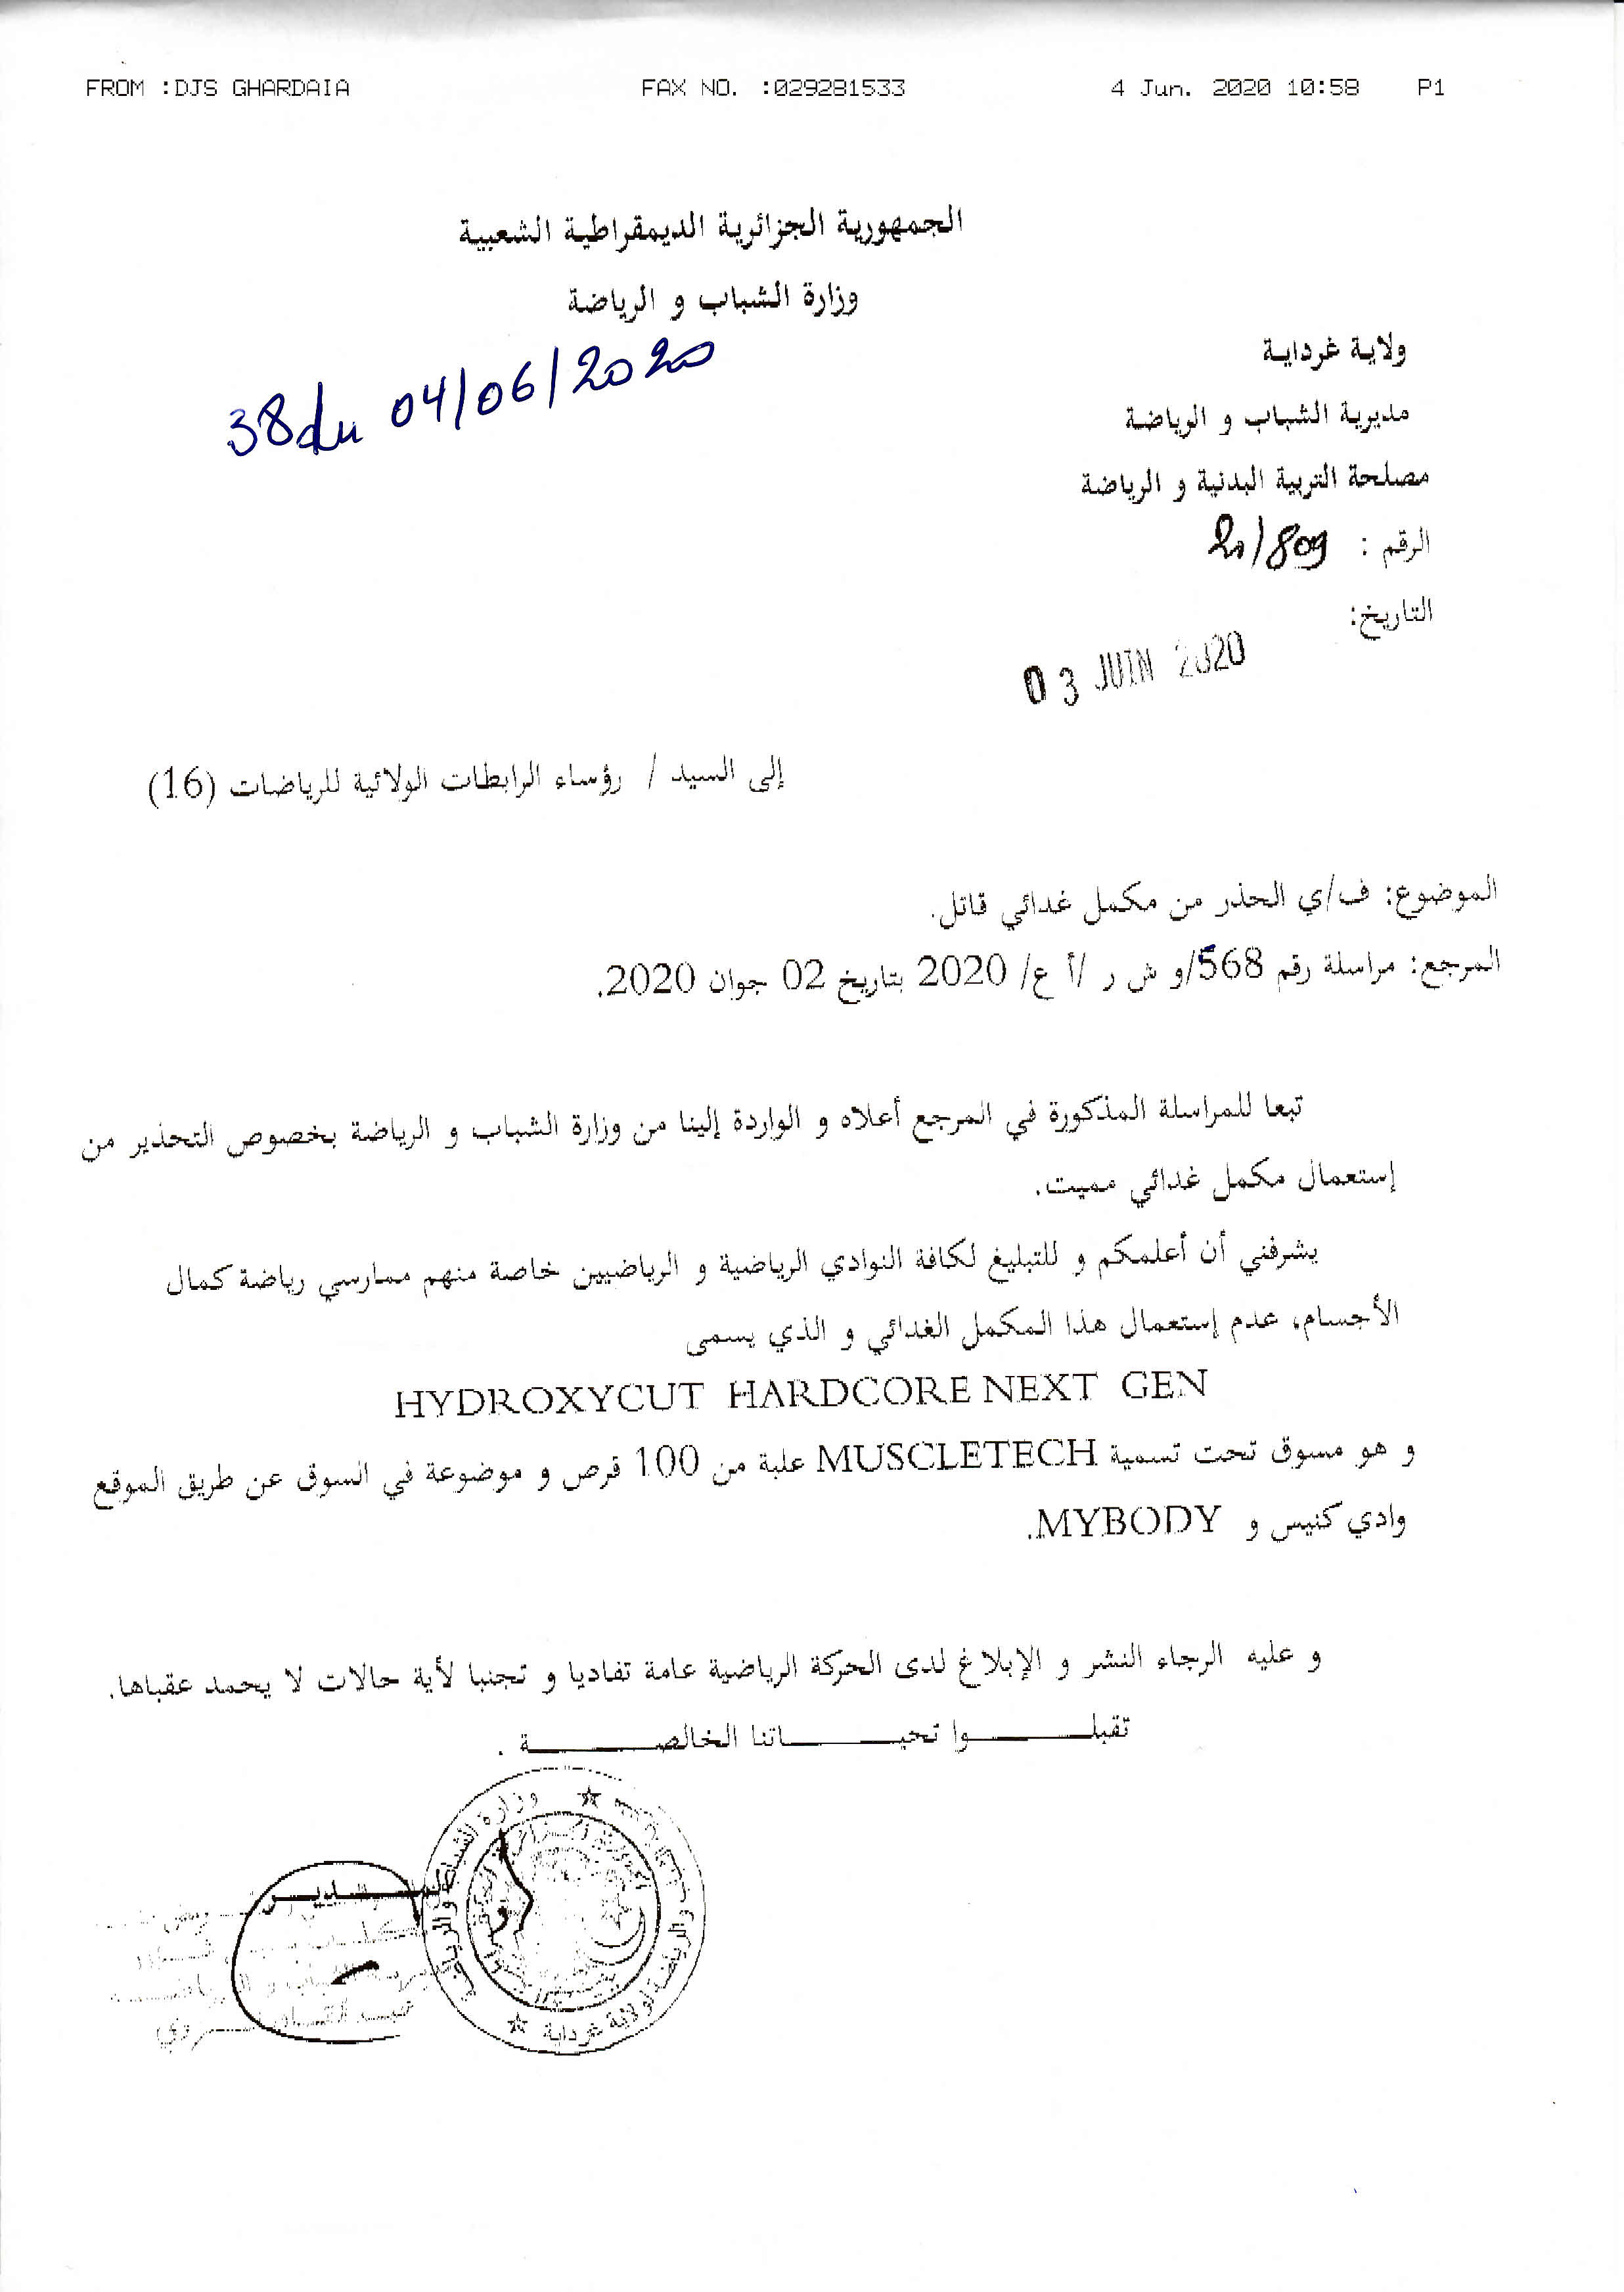 FROM :DJS GHARDAIA FAX NO. :029281533 4 Jun. 2020 10:58 P1
الجمهورية الجزائرية الديمقراطية الشعبية
وزارة الشباب و الرياضة
38 du 04/06/2020
ولاية غرداية
مديرية الشباب و الرياضة
مصلحة التربية البدنية و الرياضة
الرقم : 20/809
التاريخ:
03 JUIN 2020
إلى السيد / رؤساء الرابطات الولائية للرياضات (16)
الموضوع: ف/ي الحذر من مكمل غدائي قاتل.
المرجع: مراسلة رقم 568/و ش ر /أ ع/ 2020 بتاريخ 02 جوان 2020.
تبعا للمراسلة المذكورة في المرجع أعلاه و الواردة إلينا من وزارة الشباب و الرياضة بخصوص التحذير من
إستعمال مكمل غدائي مميت.
يشرفني أن أعلمكم و للتبليغ لكافة النوادي الرياضية و الرياضيين خاصة منهم ممارسي رياضة كمال
الأجسام، عدم إستعمال هذا المكمل الغدائي و الذي يسمى
HYDROXYCUT HARDCORE NEXT GEN
و هو مسوق تحت تسمية MUSCLETECH علبة من 100 قرص و موضوعة في السوق عن طريق الموقع
وادي كنيس و MYBODY.
و عليه الرجاء النشر و الإبلاغ لدى الحركة الرياضية عامة تفاديا و تجنبا لأية حالات لا يحمد عقباها.
تقبلـــــوا تحيـــــاتنا الخالصـــــة .
وزارة الشباب والرياضة
والرياضة لولاية غرداية
المـــديـــر